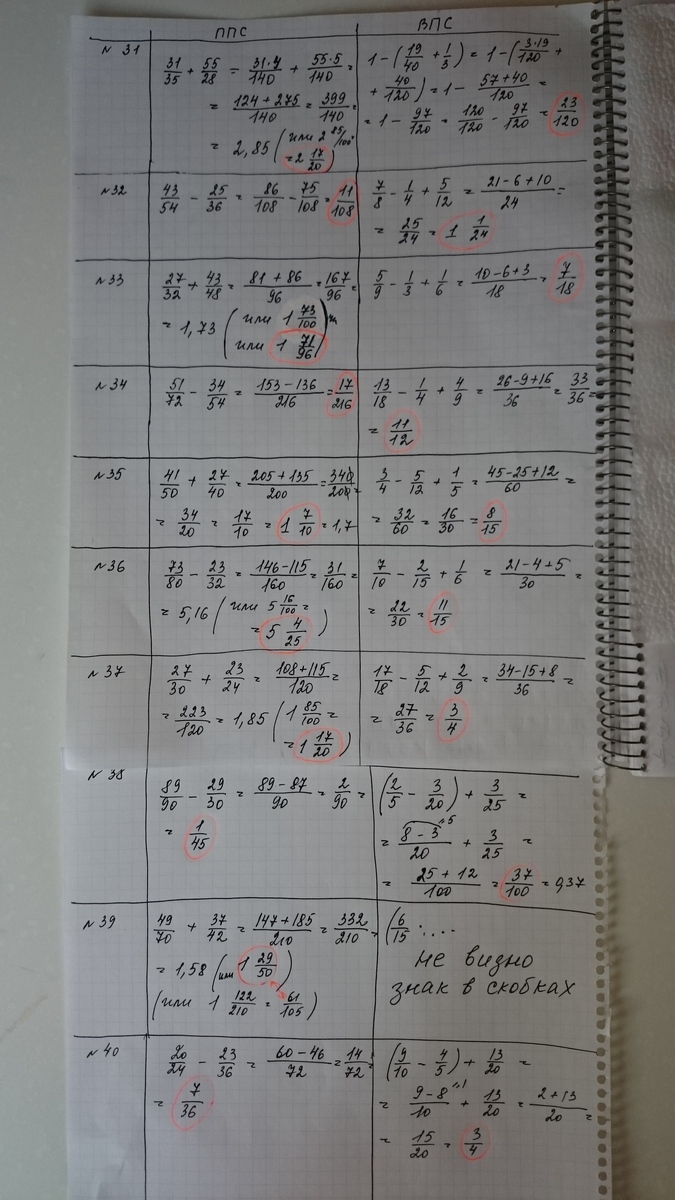 ППС ВПС
№ 31
31/35 + 55/28 = 31·4/140 + 55·5/140 =
= 124 + 275/140 = 399/140 =
= 2,85 (или 2 85/100 =
= 2 17/20)
1 - (19/40 + 1/3) = 1 - (3·19/120 +
+ 40/120) = 1 - 57 + 40/120 =
= 1 - 97/120 = 120/120 - 97/120 = 23/120
№ 32
43/54 - 25/36 = 86/108 - 75/108 = 11/108
7/8 - 1/4 + 5/12 = 21 - 6 + 10/24 =
= 25/24 = 1 1/24
№ 33
27/32 + 43/48 = 81 + 86/96 = 167/96 =
= 1,73 (или 1 73/100
или 1 71/96)
5/9 - 1/3 + 1/6 = 10 - 6 + 3/18 = 7/18
№ 34
51/72 - 34/54 = 153 - 136/216 = 17/216
13/18 - 1/4 + 4/9 = 26 - 9 + 16/36 = 33/36 =
= 11/12
№ 35
41/50 + 27/40 = 205 + 135/200 = 340/200 =
= 34/20 = 17/10 = 1 7/10 = 1,7
3/4 - 5/12 + 1/5 = 45 - 25 + 12/60 =
= 32/60 = 16/30 = 8/15
№ 36
73/80 - 23/32 = 146 - 115/160 = 31/160 =
= 5,16 (или 5 16/100 =
= 5 4/25)
7/10 - 2/15 + 1/6 = 21 - 4 + 5/30 =
= 22/30 = 11/15
№ 37
27/30 + 23/24 = 108 + 115/120 =
= 223/120 = 1,85 (1 85/100 =
= 1 17/20)
17/18 - 5/12 + 2/9 = 34 - 15 + 8/36 =
= 27/36 = 3/4
№ 38
89/90 - 29/30 = 89 - 87/90 = 2/90 =
= 1/45
(2/5 - 3/20) + 3/25 =
= 8 - 3/20 + 3/25 =
= 25 + 12/100 = 37/100 = 0,37
№ 39
49/70 + 37/42 = 147 + 185/210 = 332/210 =
= 1,58 (или 1 29/50)
(или 1 122/210 = 61/105)
(6/15 ....
не видно
знак в скобках
№ 40
20/24 - 23/36 = 60 - 46/72 = 14/72 =
= 7/36
(9/10 - 4/5) + 13/20 =
= 9 - 8/10 + 13/20 = 2 + 13/20 =
= 15/20 = 3/4